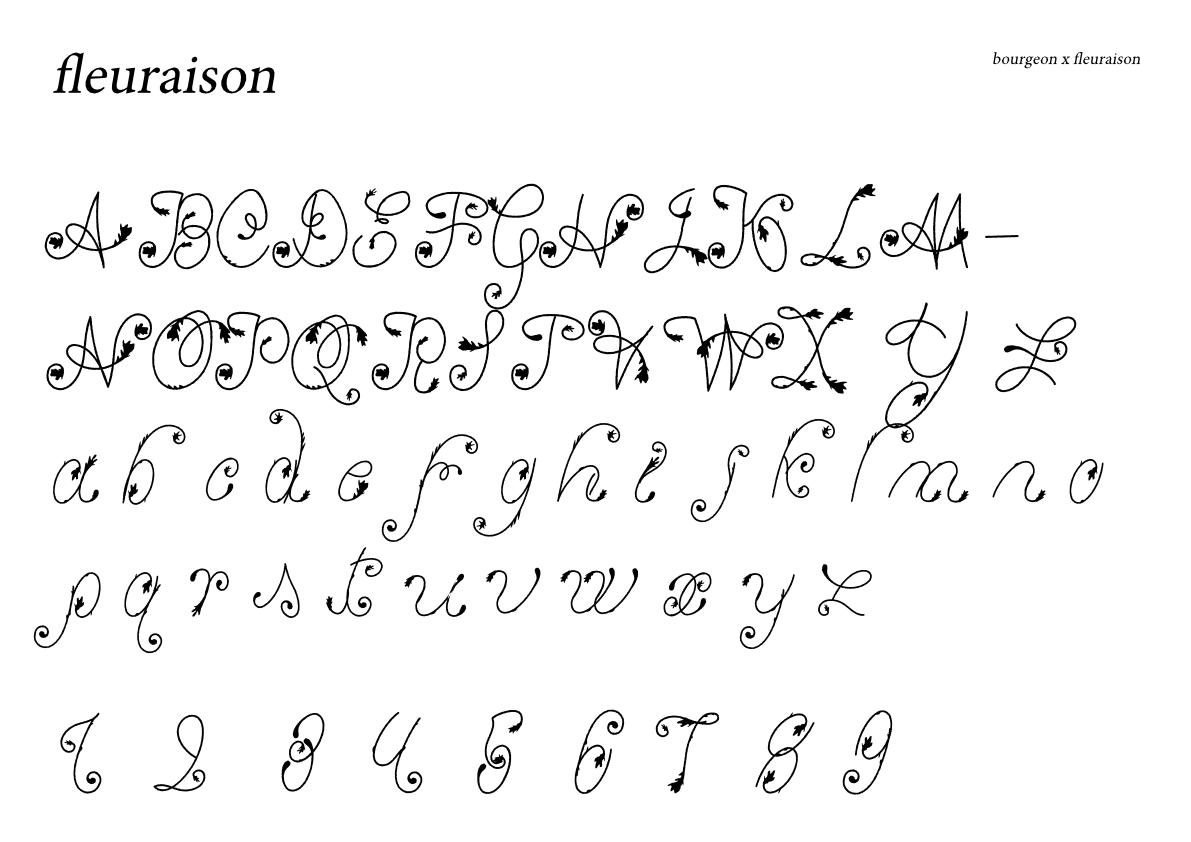 fleuraison
bourgeon x fleuraison
A B C D E F G H I K L M —
N O P Q R S T V W X Y Z
a b c d e f g h i j k l m n o
p q r s t u v w x y z
1 2 3 4 5 6 7 8 9